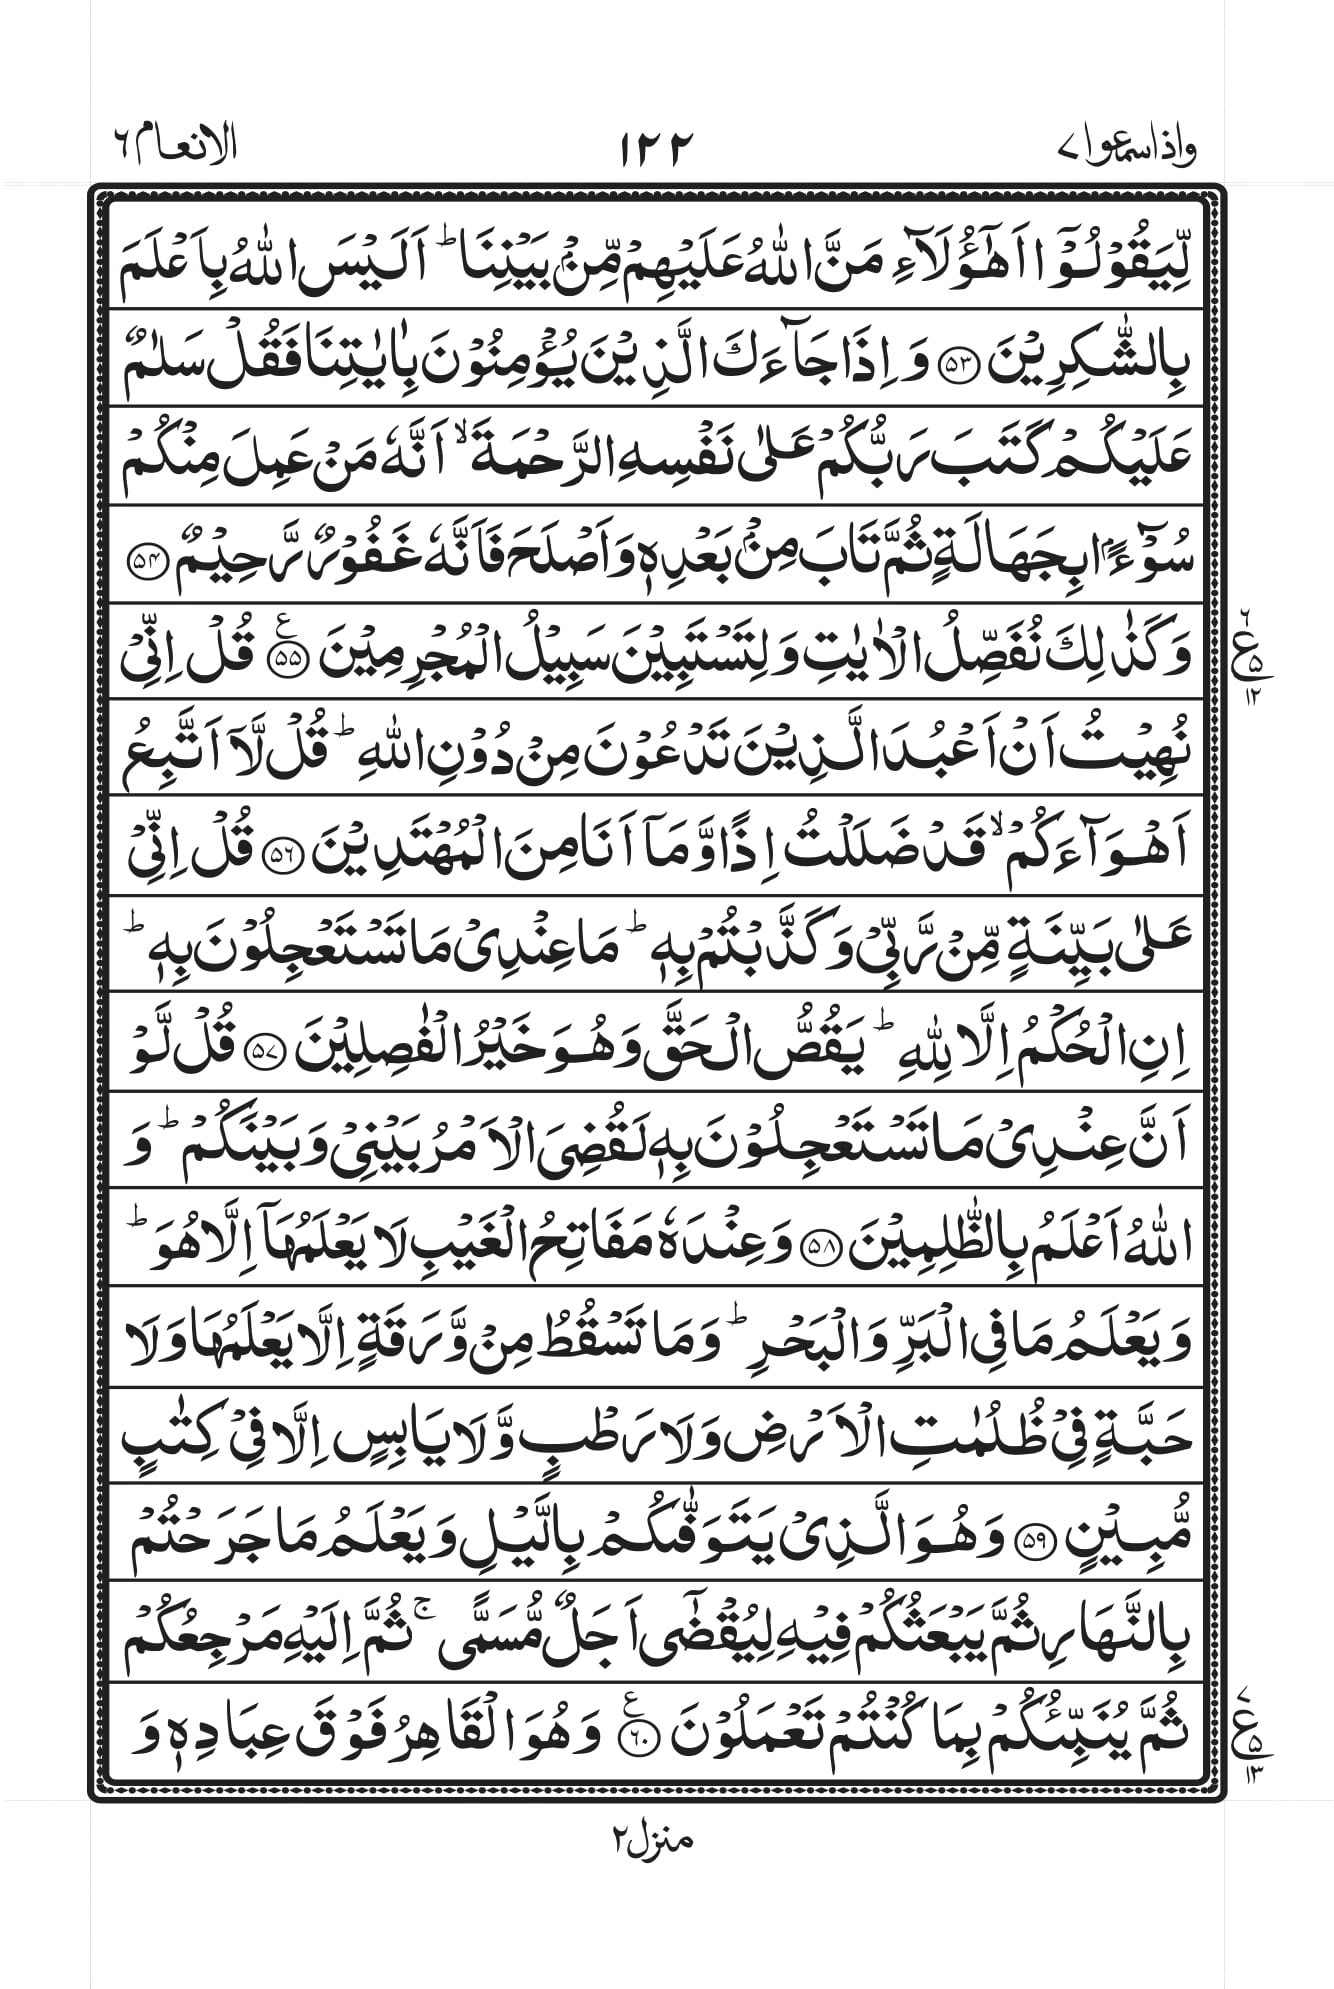 واذاسمعوا ٧
١٢٢
الانعام ٦
لِّيَقُوۡلُوۡۤا اَهٰٓؤُلَآءِ مَنَّ اللّٰهُ عَلَيۡهِمۡ مِّنۡۢ بَيۡنِنَا ؕ اَلَيۡسَ اللّٰهُ بِاَعۡلَمَ
بِالشّٰكِرِيۡنَ ۝۵۳ وَاِذَا جَآءَكَ الَّذِيۡنَ يُؤۡمِنُوۡنَ بِاٰيٰتِنَا فَقُلۡ سَلٰمٌ
عَلَيۡكُمۡ كَتَبَ رَبُّكُمۡ عَلٰى نَفۡسِهِ الرَّحۡمَةَ ۙ اَنَّهٗ مَنۡ عَمِلَ مِنۡكُمۡ
سُوۡٓءًۢا بِجَهَالَةٍ ثُمَّ تَابَ مِنۡۢ بَعۡدِهٖ وَاَصۡلَحَ فَاَنَّهٗ غَفُوۡرٌ رَّحِيۡمٌ ۝۵۴
وَكَذٰلِكَ نُفَصِّلُ الۡاٰيٰتِ وَلِتَسۡتَبِيۡنَ سَبِيۡلُ الۡمُجۡرِمِيۡنَ ۝۵۵ ع قُلۡ اِنِّىۡ
ع ٦ ۵ ١٢
نُهِيۡتُ اَنۡ اَعۡبُدَ الَّذِيۡنَ تَدۡعُوۡنَ مِنۡ دُوۡنِ اللّٰهِ ؕ قُلۡ لَّاۤ اَتَّبِعُ
اَهۡوَآءَكُمۡ ۙ قَدۡ ضَلَلۡتُ اِذًا وَّمَاۤ اَنَا مِنَ الۡمُهۡتَدِيۡنَ ۝۵۶ قُلۡ اِنِّىۡ
عَلٰى بَيِّنَةٍ مِّنۡ رَّبِّىۡ وَكَذَّبۡتُمۡ بِهٖ ؕ مَا عِنۡدِىۡ مَا تَسۡتَعۡجِلُوۡنَ بِهٖ ؕ
اِنِ الۡحُكۡمُ اِلَّا لِلّٰهِ ؕ يَقُصُّ الۡحَقَّ وَهُوَ خَيۡرُ الۡفٰصِلِيۡنَ ۝۵۷ قُلۡ لَّوۡ
اَنَّ عِنۡدِىۡ مَا تَسۡتَعۡجِلُوۡنَ بِهٖ لَقُضِىَ الۡاَمۡرُ بَيۡنِىۡ وَبَيۡنَكُمۡ ؕ وَ
اللّٰهُ اَعۡلَمُ بِالظّٰلِمِيۡنَ ۝۵۸ وَعِنۡدَهٗ مَفَاتِحُ الۡغَيۡبِ لَا يَعۡلَمُهَاۤ اِلَّا هُوَ ؕ
وَيَعۡلَمُ مَا فِى الۡبَرِّ وَالۡبَحۡرِ ؕ وَمَا تَسۡقُطُ مِنۡ وَّرَقَةٍ اِلَّا يَعۡلَمُهَا وَلَا
حَبَّةٍ فِىۡ ظُلُمٰتِ الۡاَرۡضِ وَلَا رَطۡبٍ وَّلَا يَابِسٍ اِلَّا فِىۡ كِتٰبٍ
مُّبِيۡنٍ ۝۵۹ وَهُوَ الَّذِىۡ يَتَوَفّٰٮكُمۡ بِالَّيۡلِ وَيَعۡلَمُ مَا جَرَحۡتُمۡ
بِالنَّهَارِ ثُمَّ يَبۡعَثُكُمۡ فِيۡهِ لِيُقۡضٰٓى اَجَلٌ مُّسَمًّى ۚ ثُمَّ اِلَيۡهِ مَرۡجِعُكُمۡ
ثُمَّ يُنَبِّئُكُمۡ بِمَا كُنۡتُمۡ تَعۡمَلُوۡنَ ۝۶۰ ع وَهُوَ الۡقَاهِرُ فَوۡقَ عِبَادِهٖ وَ
ع ٧ ۵ ١٣
منزل ٢